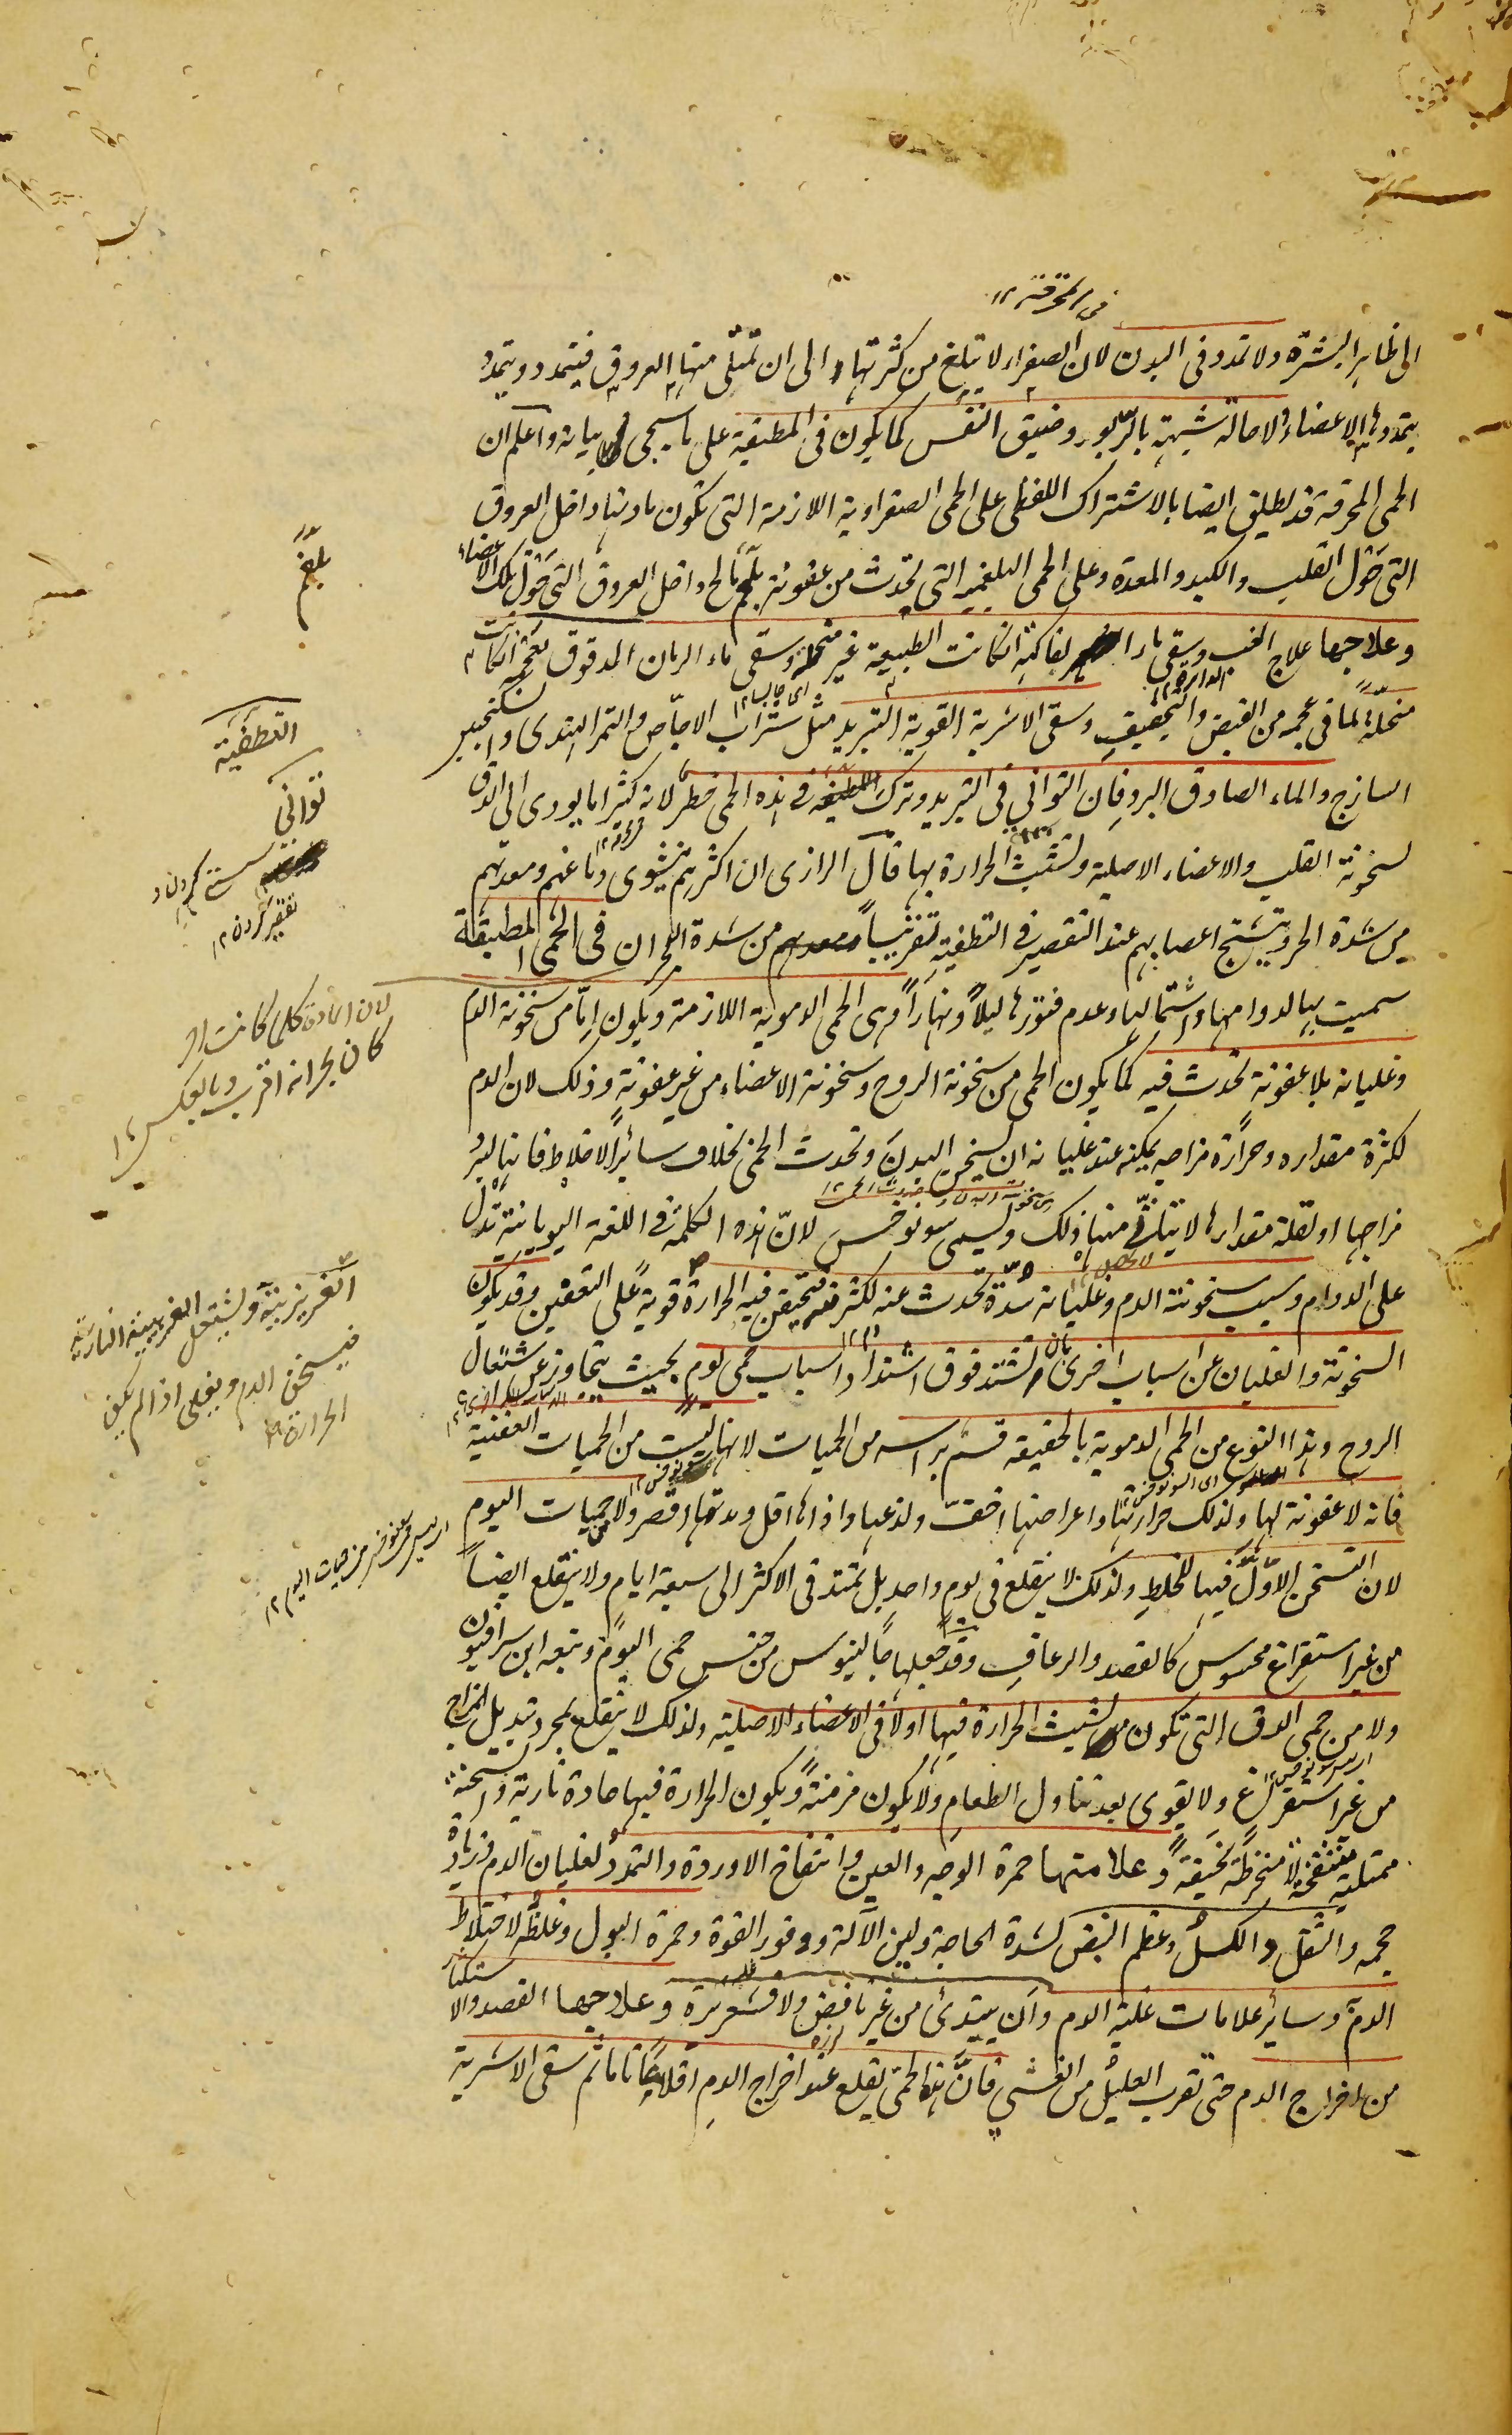 فى المحرقة ١٢
الى ظاهر البشرة ولا تمدد فى البدن لان الصفراء لا يبلغ من كثرتها الى ان تمتلى منها العروق فيتمدد ويتمدد
بتمددها الاعضاء ولا حالة شبيهة بالربو وضيق النفس كما يكون فى المطبقة على ما سيجى بيانه واعلم ان
الحمى المحرقة قد يطلق ايضا بالاشتراك اللفظى على الحمى الصفراوية اللازمة التى تكون مادتها داخل العروق
التى حول القلب والكبد والمعدة وعلى الحمى البلغمية التى تحدث من عفونة بلغم مالح داخل العروق التى حول تلك الاعضاء
وعلاجها علاج الغب وسقى ماء الفاكهة انكانت الطبيعة غير منحلة وسقى ماء الرمان المدقوق بعجمه انكانت
منحلة لما فى عجمه من القبض والتجفيف وسقى الاشربة القوية التبريد مثل شراب الاجاص والتمر الهندى والسكنجبين
الساذج والماء الصادق البرد فان التوانى فى التبريد وترك التطفية فى هذه الحمى خطر لانه كثيرا ما يودى الى الدق
لسخونة القلب والاعضاء الاصلية وتشبث الحرارة بها قال الرازى ان اكثرهم يشوى دماغهم ومعدتهم
من شدة الحر ويتشنج اعصابهم عند التقصير فى التطفية تقريبا من شدة الحر ان فى الحمى المطبقة
سميت بها لدوامها واشتمالها وعدم فتورها ليلا ونهارا وهى الحمى الدموية اللازمة ويكون اما من سخونة الدم
وغليانه بلا عفونة تحدث فيه كما يكون الحمى من سخونة الروح وسخونة الاعضاء من غير عفونة وذلك لان الدم
لكثرة مقداره وحرارة مزاجه يمكنه عند غليانه ان يسخن البدن وتحدث الحمى بخلاف سائر الاخلاط فانها لبرد
مزاجها او لقلة مقدارها لا يتاتى منها ذلك ويسمى سونوخس لان هذه الكلمة فى اللغة اليونانية تدل
على الدوام وسبب سخونة الدم وغليانه سدة تحدث عنه لكثرته فتحقن فيه الحرارة قوية على التعفين وقد يكون
السخونة والغليان عن اسباب اخرى بان تشتد فوق اشتداد اسباب حمى يوم بحيث يتجاوز عن اشتعال
الروح وهذا النوع من الحمى الدموية بالحقيقة قسم براسه من الحميات لانها ليست من الحميات العفنية
فانه لا عفونة لها ولذلك حرارتها واعراضها اخف ولذعها واذاها اقل ومدتها اقصر ولا من حميات اليوم
لان التسخن الاول فيها للخلط ولذلك لا يقلع فى يوم واحد بل تمتد فى الاكثر الى سبعة ايام ولا يقلع ايضا
من غير استفراغ محسوس كالفصد والرعاف وقد جعلها جالينوس من جنس حمى اليوم وتبعه ابن سرافيون
ولا من حمى الدق التى تكون تشبث الحرارة فيها اولا فى الاعضاء الاصلية ولذلك لا يقلع بمجرد تبديل المزاج
من غير استفراغ ولا يقوى بعد تناول الطعام ولا يكون مزمنة ويكون الحرارة فيها حادة نارية والسحنة
ممتلية منتفخة لا منخرطة نحيفة وعلامتها حمرة الوجه والعين وانتفاخ الاوردة والتمدد لغليان الدم وزيادة
حجمه والثقل والكسل وعظم النبض لشدة الحاجة ولين الآلة ووفور القوة وحمرة البول وغلظه لاختلاط
الدم وسائر علامات غلبة الدم وان يبتدئ من غير نافض ولا قشعريرة وعلاجها الفصد والاستكثار
من اخراج الدم حتى تقرب العليل من الغشى فان هذا الحمى يقلع عند اخراج الدم اقلاعا تاما ثم سقى الاشربة
بلغم
التطفية
توانى
سستى كردن و
تقصير كردن ١٢
لان المادة كلما كانت احر
كان بحرانه اقرب وبالعكس ١٢
الغريزية ويشتعل الغريبة النارية
فيسخن الدم ويغلى اذا لم يكن
الحرارة
اى ليس سونوخس من حميات اليوم ١٢